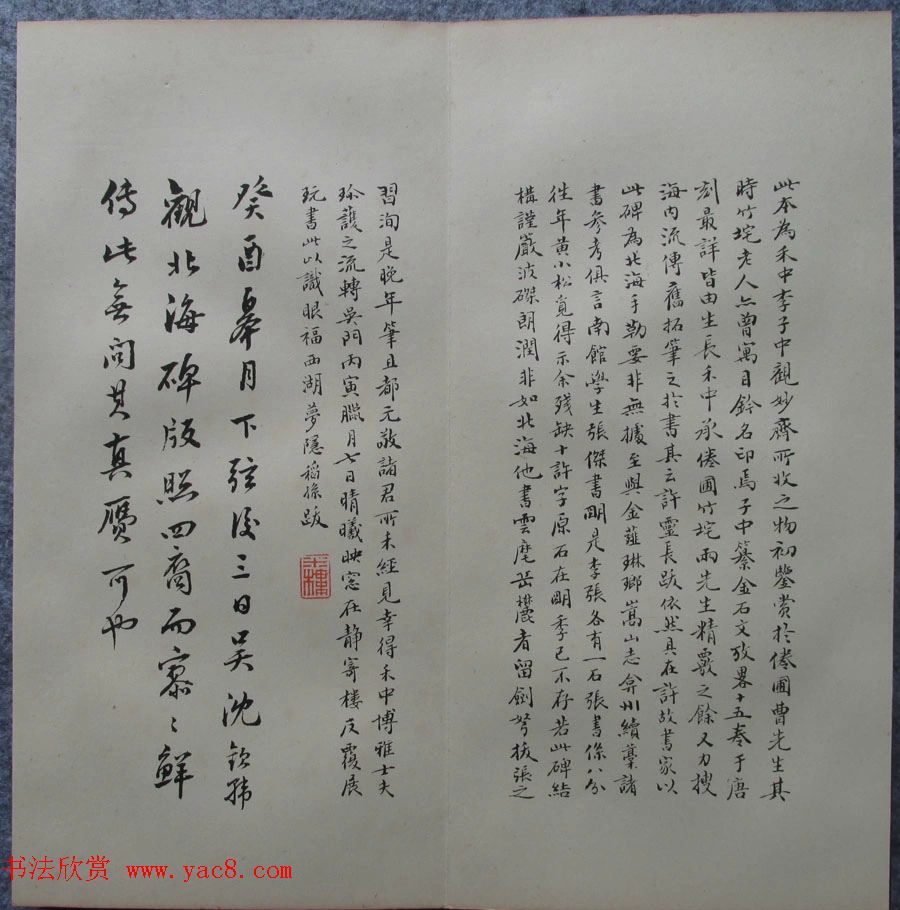 此本為禾中李子中觀妙齋所收之物初鑒賞於倦圃曹先生其
時竹垞老人亦曾寓目鈐名印焉子中纂金石文攷畧十五卷于唐
刻最詳皆由生長禾中承倦圃竹垞兩先生精覈之餘又力搜
海内流傳舊拓筆之於書其云許靈長跋依然具在許故書家以
此碑為北海手勒要非無據至與金薤琳瑯嵩山志弇州續藁諸
書參考俱言南館學生張傑書明是李張各有一石張書係八分
往年黃小松覓得示余殘缺十許字原石在明季已不存若此碑結
構謹嚴波磔朗潤非如北海他書雲麾岳麓者留劍弩拔張之
習洵是晚年筆且都元敬諸君所未經見幸得禾中博雅士夫
珍護之流轉吳門丙寅臘月七日晴曦映窓在静寄樓反覆展
玩書此以識眼福西湖夢隱稻孫跋
癸酉辜月下弦後三日吳沈欽韩
觀北海碑版照四裔而寥〻鮮
傳此無問其真贋可也
书法欣赏 www.yac8.com